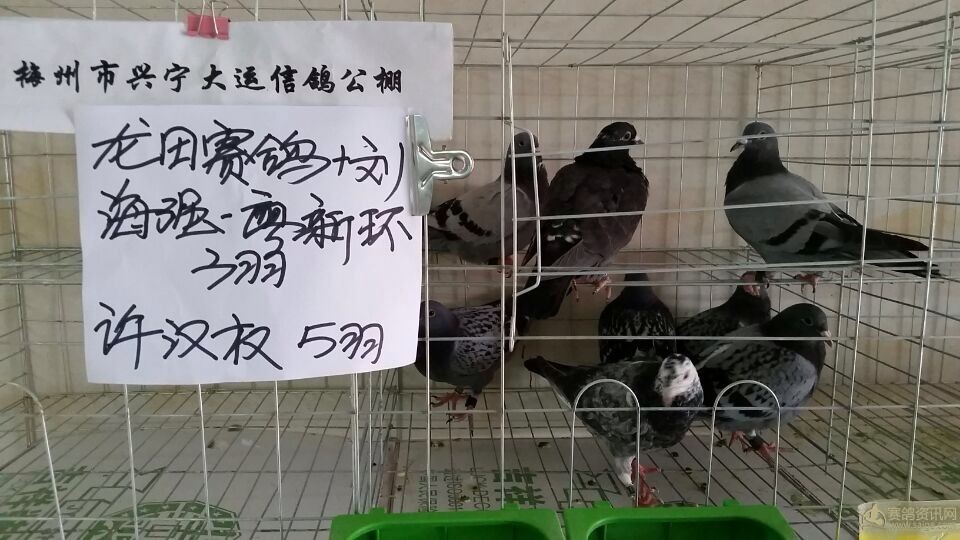 梅州市兴宁大运信鸽公棚
龙田赛鸽+刘
海强-粤新环
3羽
许汉权 5羽
赛鸽资讯网